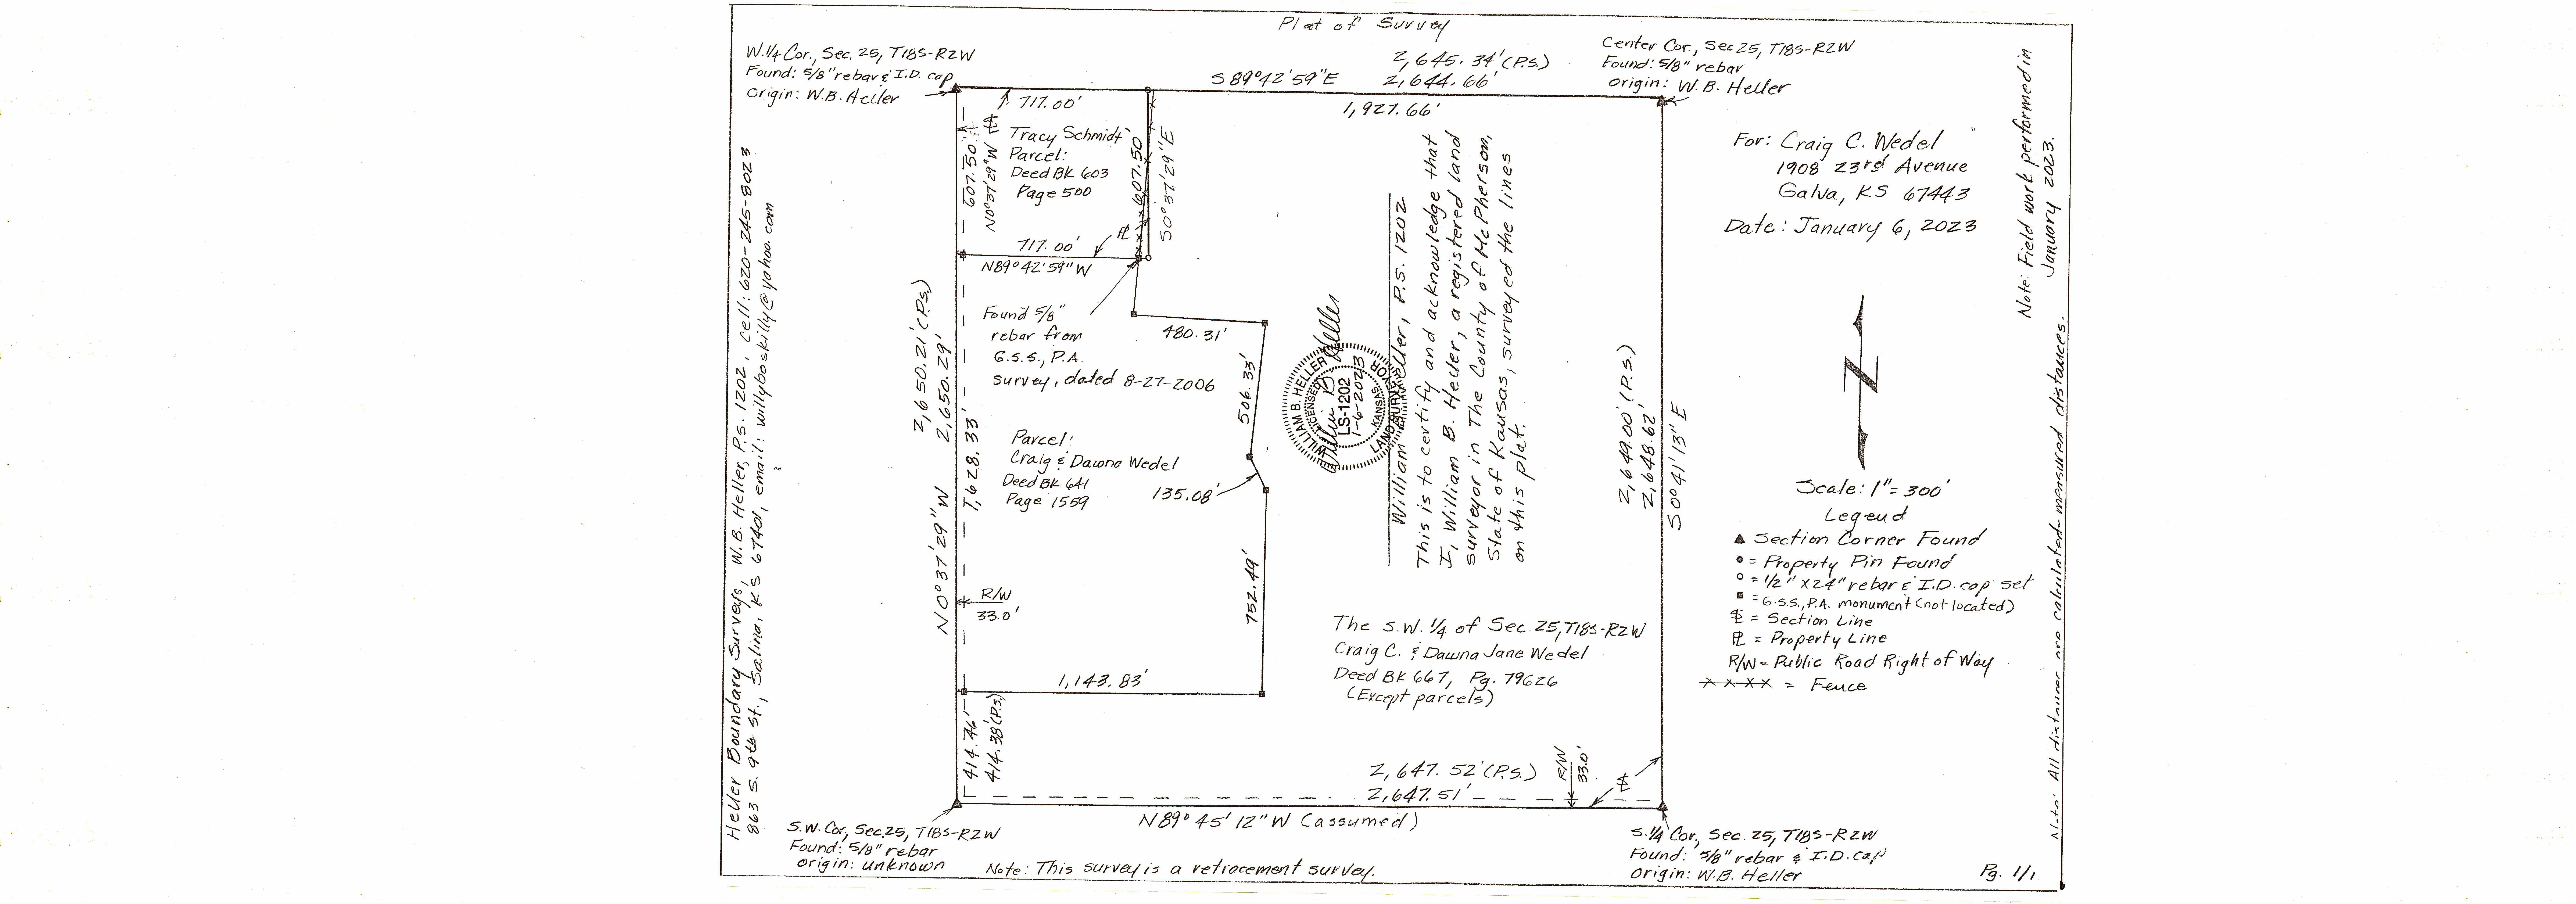 Plat of Survey
W.1/4 Cor., Sec. 25, T18S-R2W
Found: 5/8" rebar & I.D. cap
origin: W.B. Heller
S 89°42'59"E
2,645.34' (P.S.)
2,644.66'
Center Cor., Sec 25, T18S-R2W
Found: 5/8" rebar
origin: W.B. Heller
717.00'
1,927.66'
Tracy Schmidt
Parcel:
Deed BK 603
Page 500
607.50'
N0°37'29"W
607.50
S0°37'29"E
717.00'
N89°42'59"W
Found 5/8"
rebar from
G.S.S., P.A.
survey, dated 8-27-2006
480.31'
506.33'
135.08'
752.49'
Parcel:
Craig & Dawna Wedel
Deed BK 641
Page 1559
2,650.21' (P.S.)
2,650.29'
N0°37'29"W
1,628.33'
R/W
33.0'
1,143.83'
414.46'
414.38 (P.S.)
WILLIAM B. HELLER
LICENSED
LS-1202
1-6-2023
KANSAS
LAND SURVEYOR
William B. Heller
William Heller, P.S. 1202
This is to certify and acknowledge that
I, William B. Heller, a registered land
surveyor in The County of McPherson,
State of Kansas, surveyed the lines
on this plat.
2,649.00' (P.S.)
2,648.62'
S0°41'13"E
The S.W. 1/4 of Sec. 25, T18S-R2W
Craig C. & Dawna Jane Wedel
Deed BK 667, Pg. 79626
(Except parcels)
2,647.52' (P.S.)
2,647.51'
R/W
33.0'
N89°45'12"W (assumed)
S.W. Cor, Sec.25, T18S-R2W
Found: 5/8" rebar
origin: unknown
Note: This survey is a retracement survey.
S.1/4 Cor., Sec. 25, T18S-R2W
Found: 5/8" rebar & I.D. cap
origin: W.B. Heller
Pg. 1/1
For: Craig C. Wedel
1908 23rd Avenue
Galva, KS 67443
Date: January 6, 2023
N
Scale: 1"=300'
Legend
▲ Section Corner Found
= Property Pin Found
= 1/2" x 24" rebar & I.D. cap set
= G.S.S., P.A. monument (not located)
= Section Line
PL = Property Line
R/W = Public Road Right of Way
x x x x = Fence
Note: Field work performed in
January 2023.
Note: All distances are calculated-measured distances.
Heller Boundary Surveys, W.B. Heller, P.S. 1202, Cell: 620-245-8023
863 S. 9th St., Salina, KS 67401, email: willyboskilly@yahoo.com